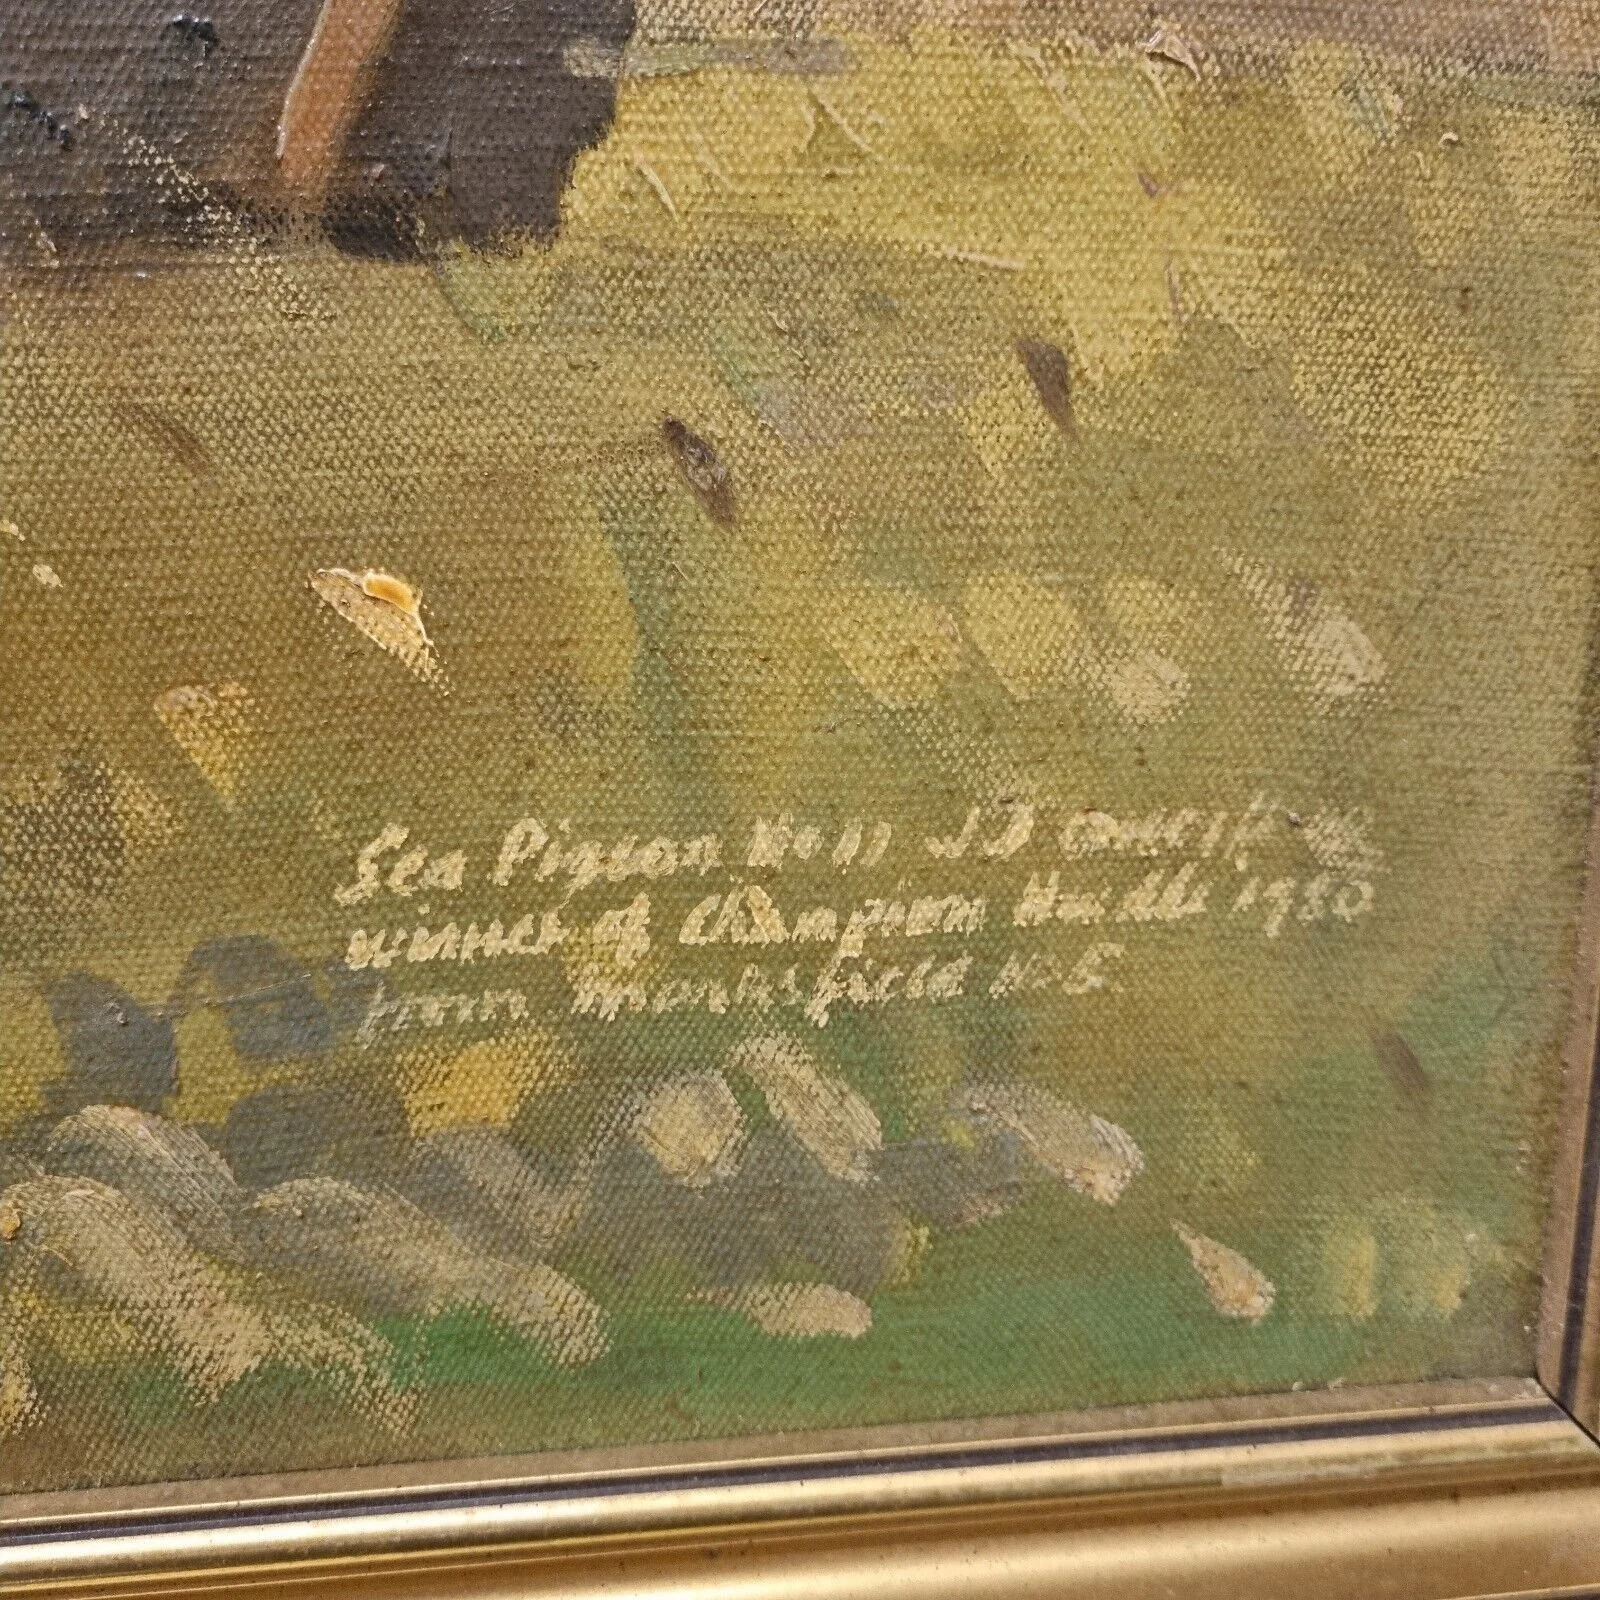 Sea Pigeon No 11 JJ O'Neill
winner of Champion Hurdle 1980
from Monksfield No 5